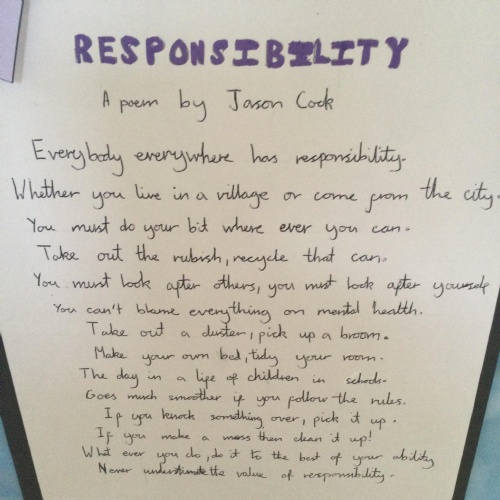 RESPONSIBILITY
A poem by Jason Cook
Everybody everywhere has responsibility.
Whether you live in a village or come from the city.
You must do your bit where ever you can.
Take out the rubish, recycle that can.
You must look after others, you must look after yourself
You can't blame everything on mental health.
Take out a duster, pick up a broom.
Make your own bed, tidy your room.
The day in a life of children in schools.
Goes much smoother if you follow the rules.
If you knock something over, pick it up.
If you make a mess then clean it up!
What ever you do, do it to the best of your ability
Never understimate the value of responsibility.